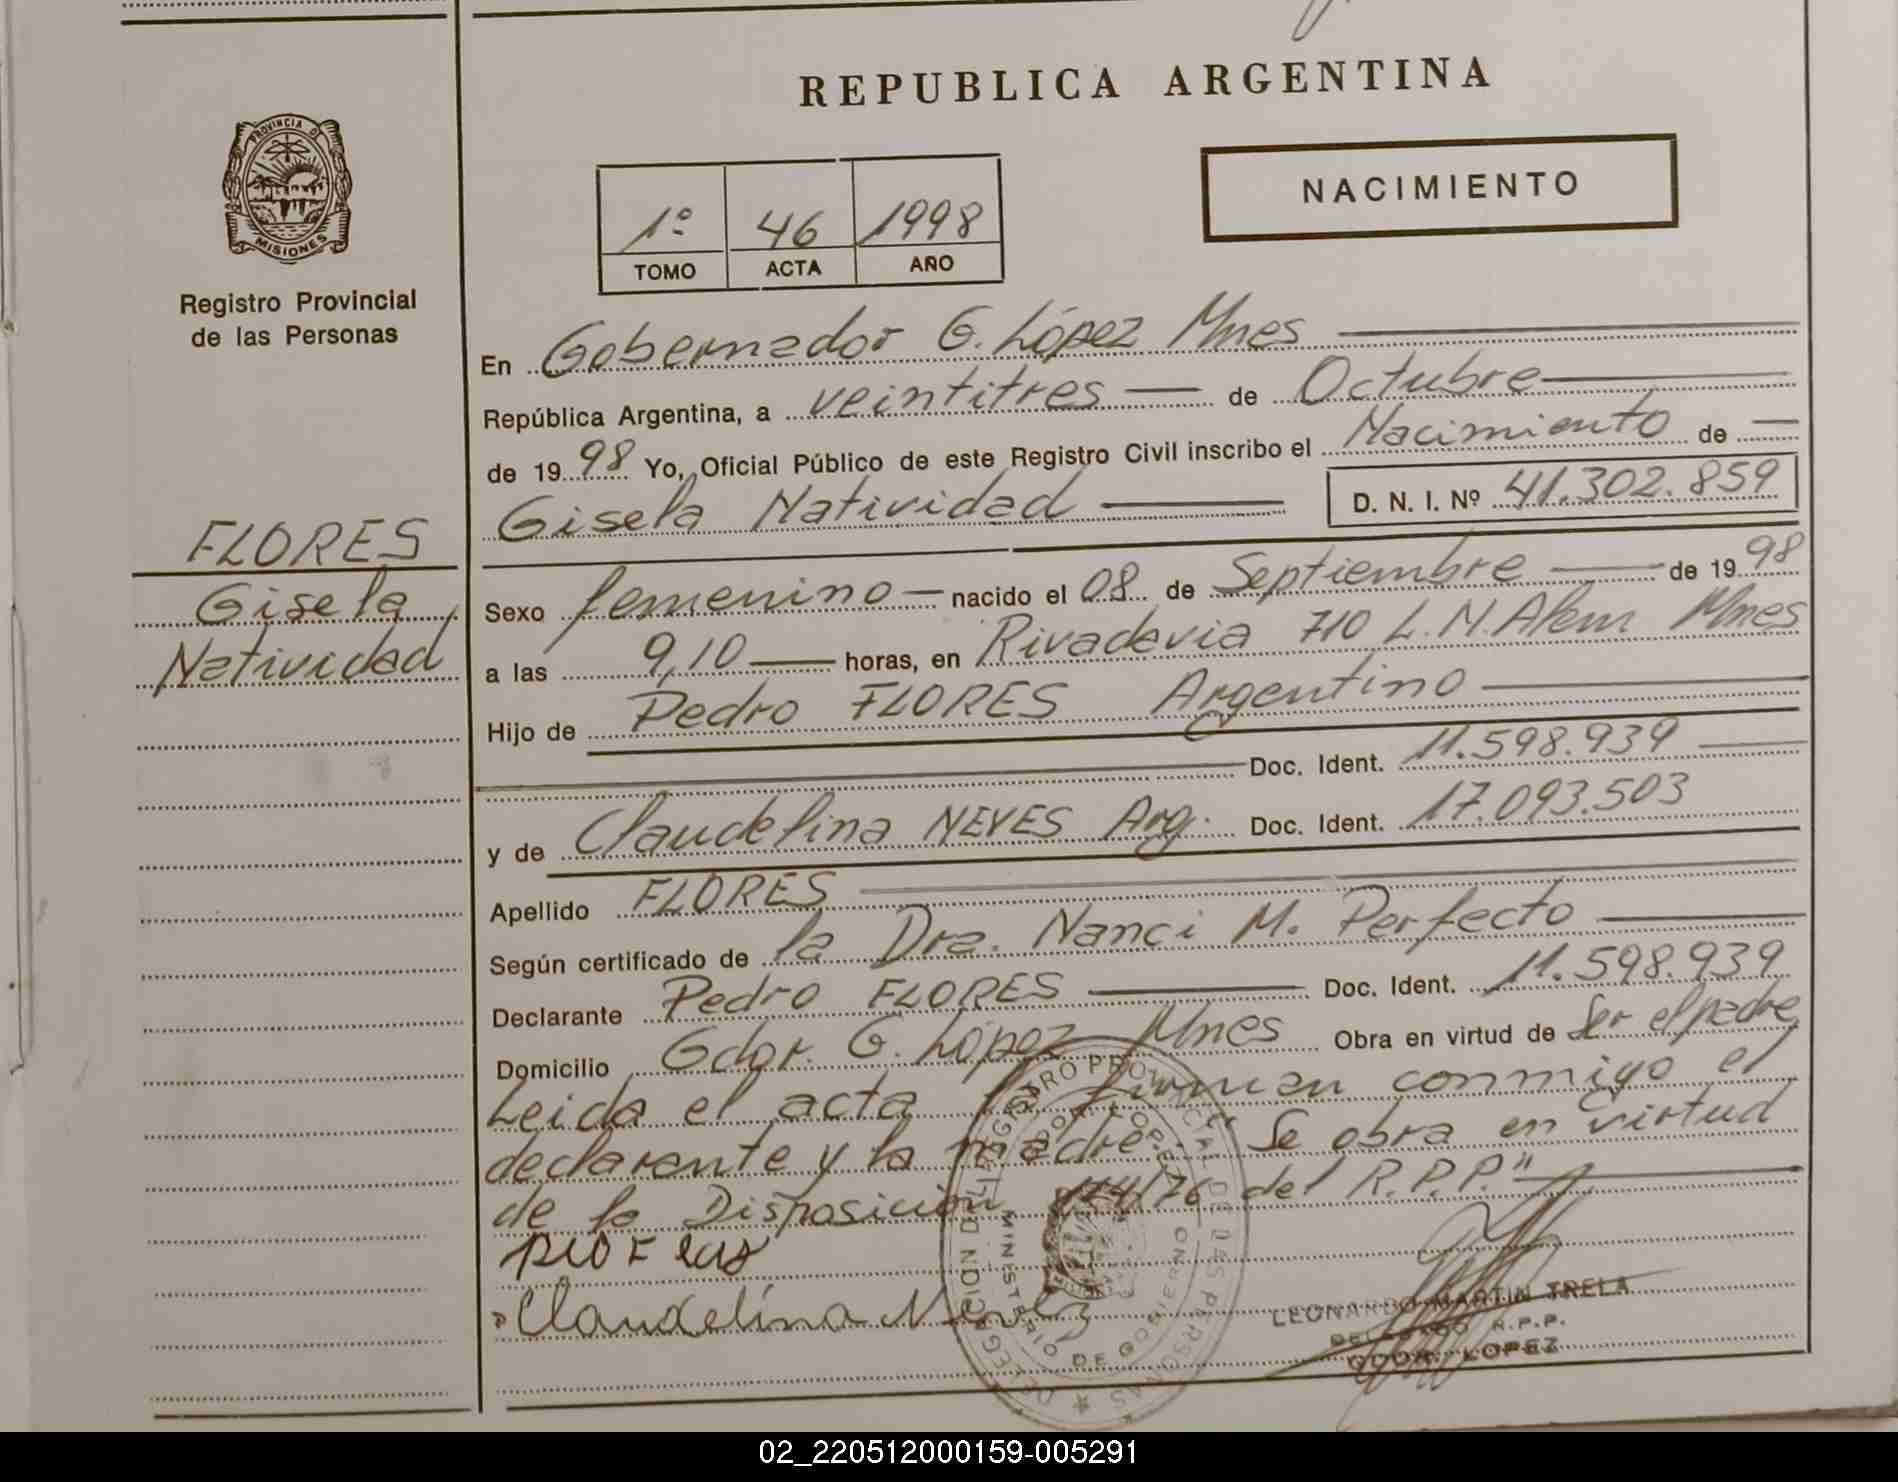 REPUBLICA ARGENTINA
PROVINCIA DE
MISIONES
Registro Provincial
de las Personas
NACIMIENTO
1º 46 1998
TOMO ACTA AÑO
FLORES
Gisela
Natividad
En Gobernador G. López Mnes
República Argentina, a veintitres de Octubre
de 19 98 Yo, Oficial Público de este Registro Civil inscribo el Nacimiento de
Gisela Natividad D. N. I. Nº 41.302.859
Sexo femenino nacido el 08 de Septiembre de 19 98
a las 9,10 horas, en Rivadavia 710 L.N. Alem Mnes
Hijo de Pedro FLORES Argentino
Doc. Ident. 11.598.939
y de Claudelina NEVES Arg. Doc. Ident. 17.093.503
Apellido FLORES
Según certificado de la Dra. Nanci M. Perfecto
Declarante Pedro FLORES Doc. Ident. 11.598.939
Domicilio Gdor. G. López Mnes Obra en virtud de Ser el padre
Leida el acta la firman conmigo el
declarante y la madre. "Se obra en virtud
de la Disposición 124/76 del R.P.P."
Claudelina Nevez
REGISTRO PROVINCIAL DE LAS PERSONAS
MINISTERIO DE GOBIERNO
LEONARDO MARTIN TRELA
DELEGADO R.P.P.
GDOR. LOPEZ
02_220512000159-005291